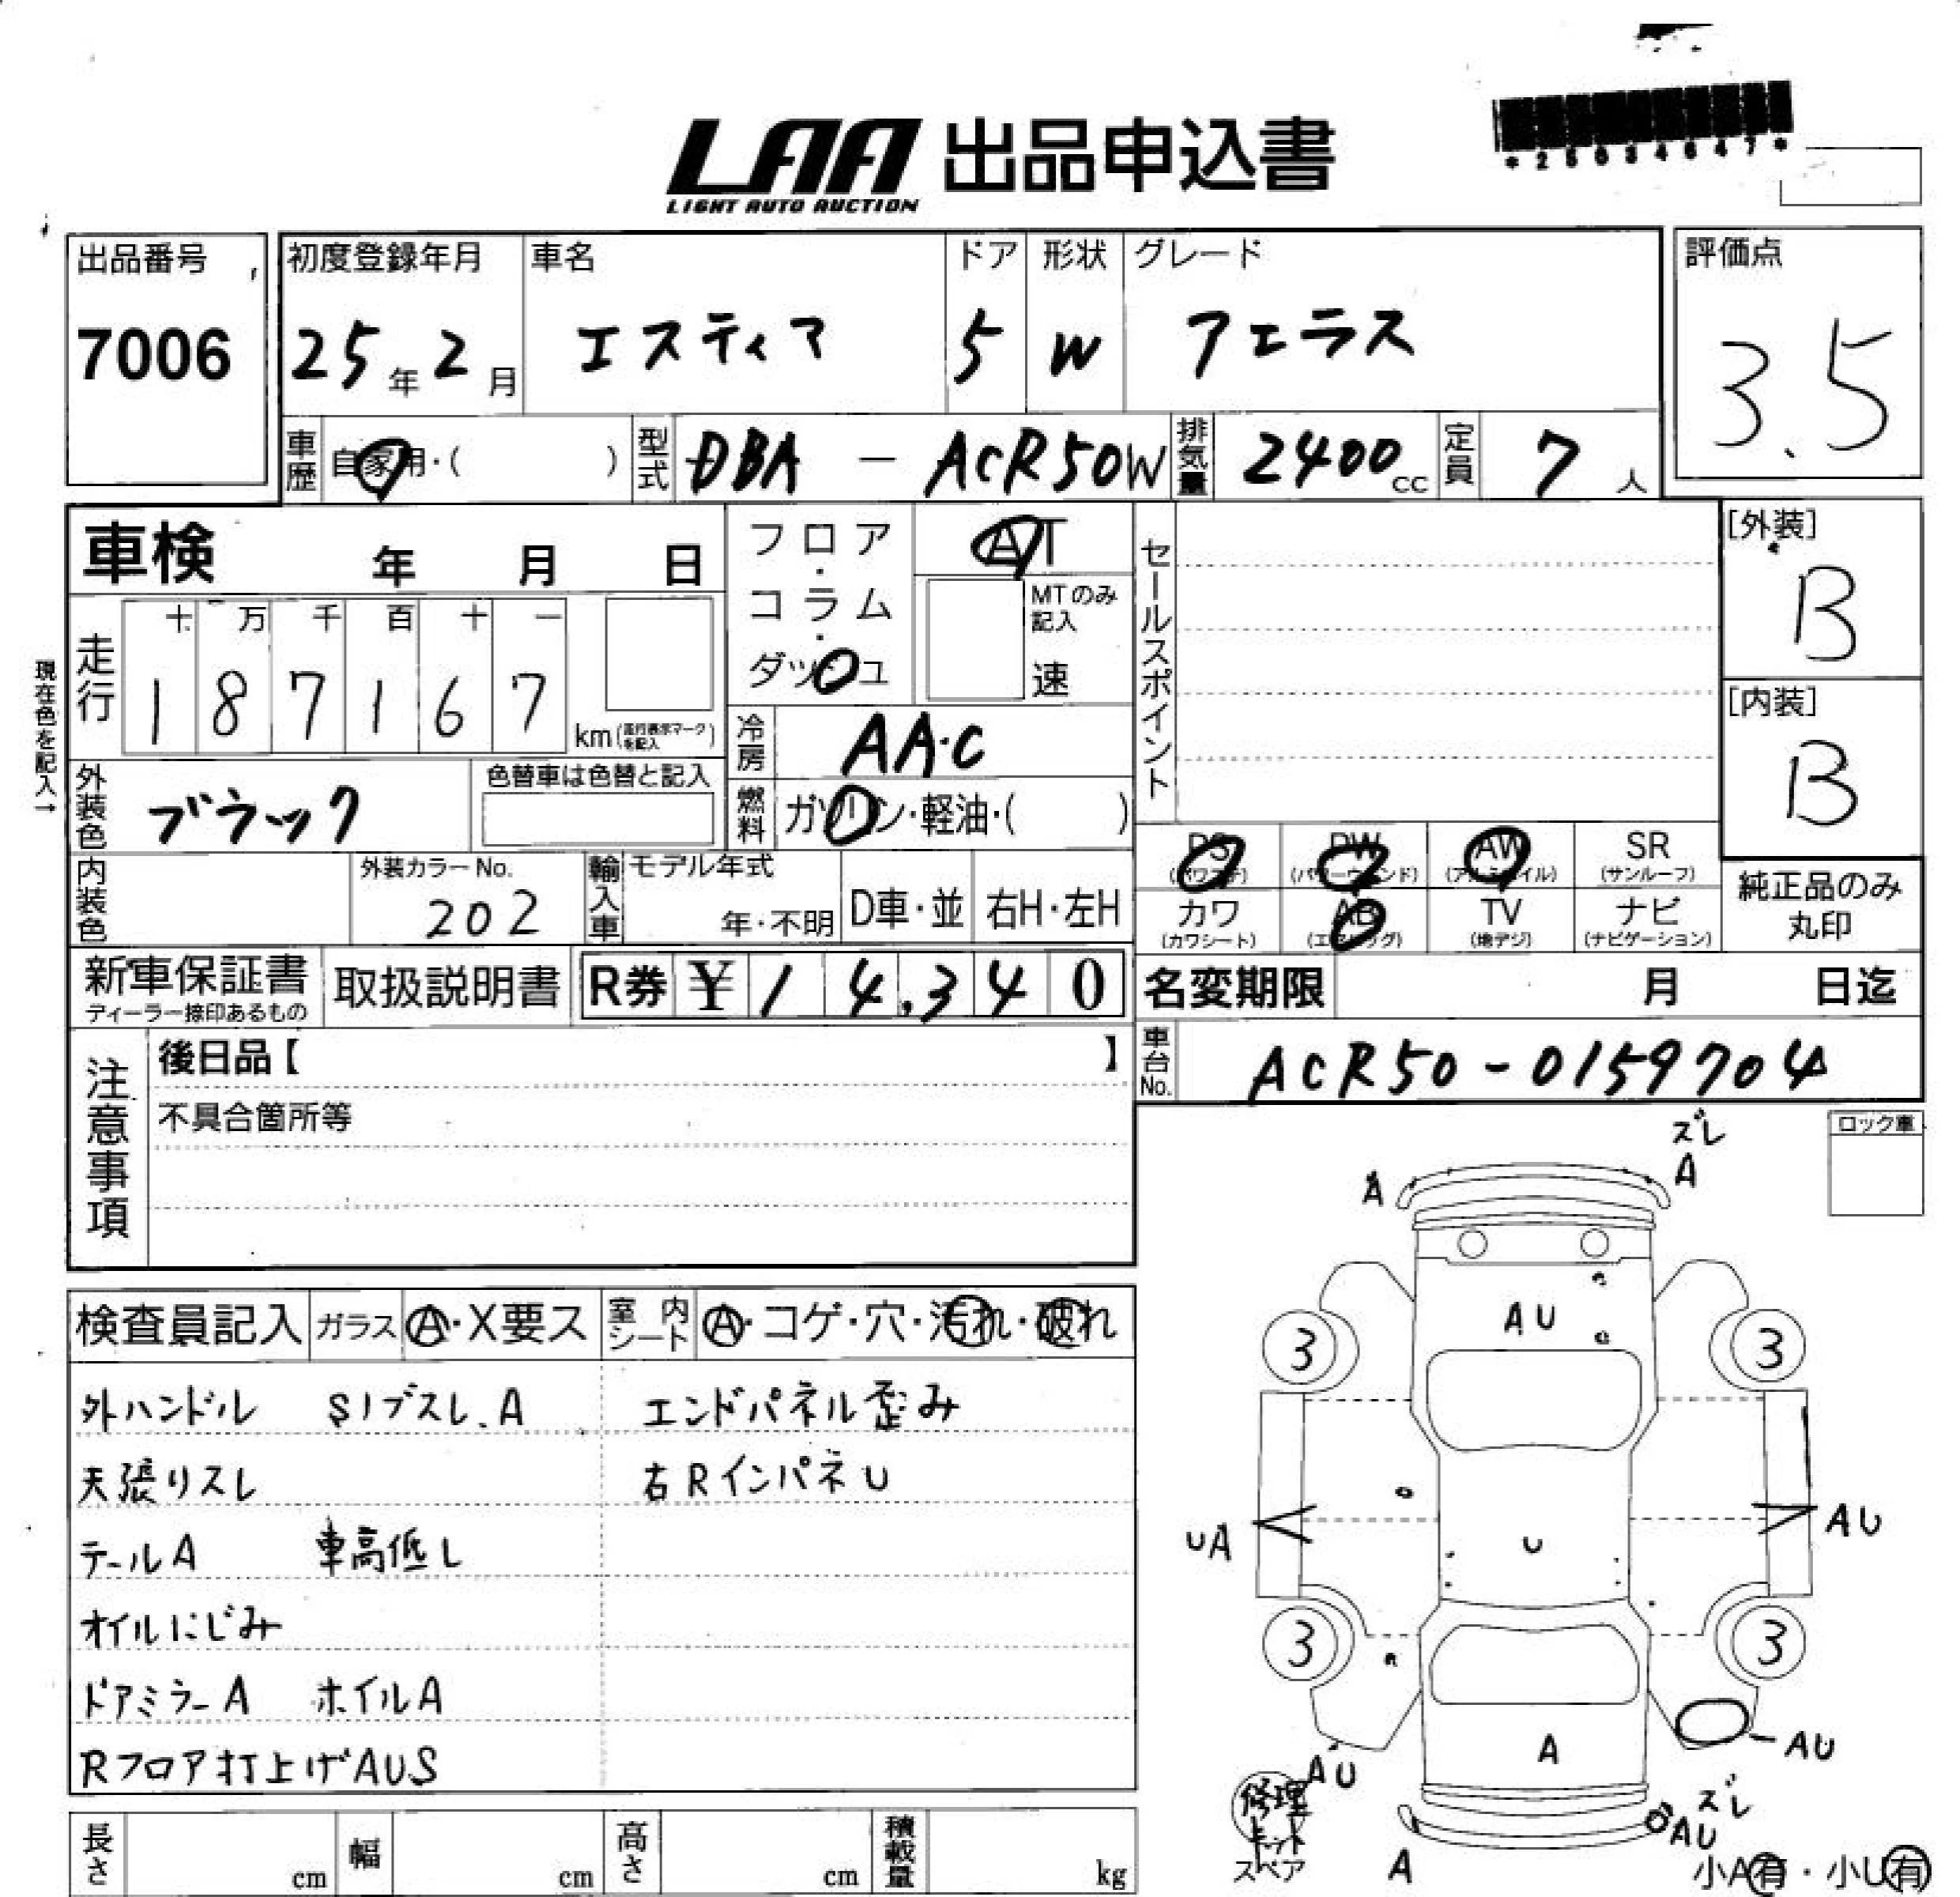 LAA 出品申込書
LIGHT AUTO AUCTION
*25034647*
出品番号
7006
初度登録年月
25年2月
車名
エスティマ
ドア
5
形状
W
グレード
アエラス
評価点
3.5
車歴
自家用・( )
型式
DBA - ACR50W
排気量
2400cc
定員
7人
車検 年 月 日
フロア・コラム・ダッシュ
AT
MTのみ記入
速
セールスポイント
[外装]
B
[内装]
B
現在色を記入→
走行
十 万 千 百 十 一
1 8 7 1 6 7
km(走行表示マークを記入)
冷房
AAC
外装色
ブラック
色替車は色替と記入
燃料
ガソリン・軽油・( )
内装色
外装カラーNo.
202
輸入車
モデル年式
年・不明
D車・並
右H・左H
PS (パワステ)
PW (パワーウィンド)
AW (アルミホイル)
SR (サンルーフ)
カワ (カワシート)
AB (エアバッグ)
TV (地デジ)
ナビ (ナビゲーション)
純正品のみ丸印
新車保証書
ディーラー捺印あるもの
取扱説明書
R券 ¥14,340
名変期限 月 日迄
車台No.
ACR50-0159704
注意事項
後日品【 】
不具合箇所等
ロック車
検査員記入
ガラス
A・X要ス
室内シート
A・コゲ・穴・汚れ・破れ
外ハンドル S1ブスレ.A エンドパネル歪み
天張りスレ 右RインパネU
テールA 車高低し
オイルにじみ
ドアミラーA ホイルA
Rフロア打上げAUS
ズレ
A
A
AU
3
3
UA
AU
U
3
3
A
AU
AU
ズレ
AU
A
修理キット
スペア
小A有・小U有
長さ cm
幅 cm
高さ cm
積載量 kg